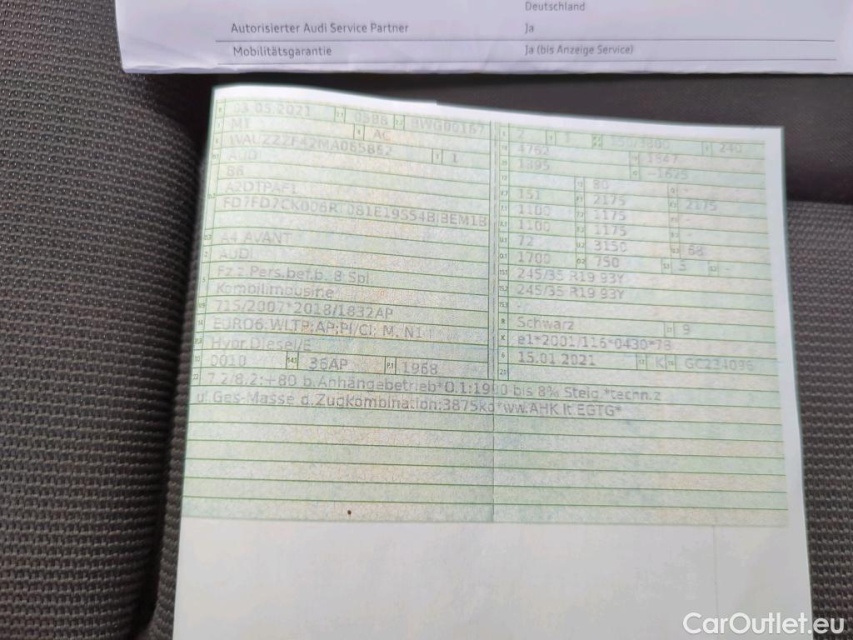 Deutschland
Autorisierter Audi Service Partner Ja
Mobilitätsgarantie Ja (bis Anzeige Service)
03.05.2021 0588 2 1 3800 240
M1 AC 4762 1847
WAUZZZF42MA065862 1 1695 -1625
AUDI 80
B8 151 2175 2175
A2DTPAF1 1100 1175 -
FD7FD7CK006R 081E19554BIBEM1B 1100 1175 -
72 3150 68
A4 AVANT 1700 750 5 -
AUDI 245/35 R19 93Y
Fz.z.Pers.bef.b. 8 Spl. 245/35 R19 93Y
Kombilimousine -
715/2007*2018/1832AP Schwarz 9
EURO6;WLTP;AP;PI/CI; M, N1 I e1*2001/116*0430*78
Hybr.Diesel/E 15.01.2021 K
0010 36AP 1968
7.2/8.2:+80 b.Anhängebetrieb*O.1:1900 bis 8% Steig.*techn.z
ul Ges-Masse d.Zugkombination:3875kg*ww.AHK lt.EGTG*
CarOutlet.eu